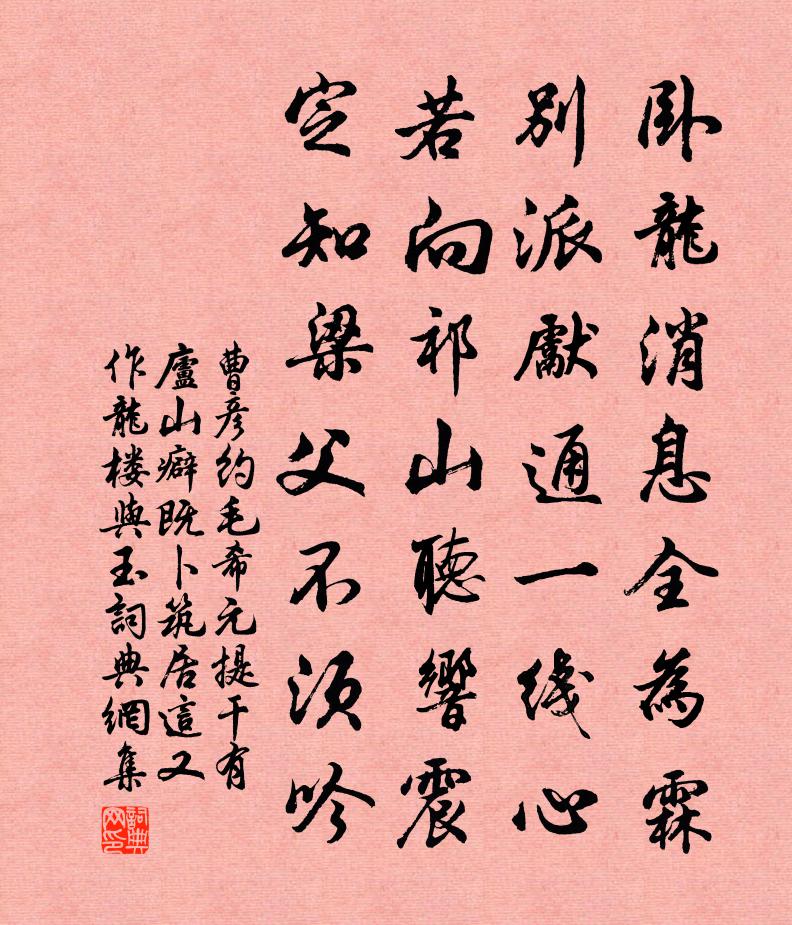 卧龍消息全為霖
別派獻通一綫心
若向祁山聽響震
定知梁父不須吟
曹彦约毛希元提干有
廬山癖既卜筑居這又
作龍楼與玉詞典網集
詞典
网印